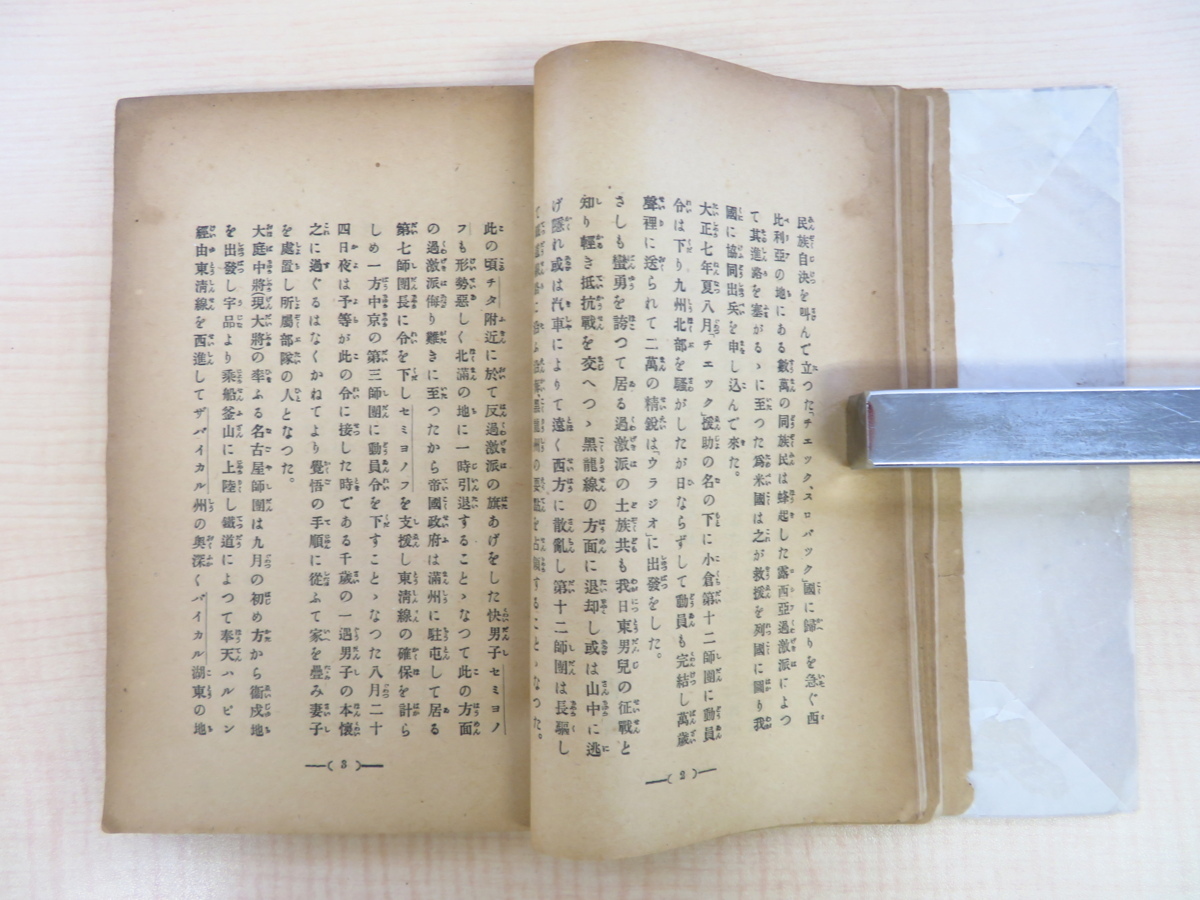 民族自決を叫んで立つた「チエック、スロバック」國に歸りを急ぐ西
比利亞の地にある數萬の同族民は蜂起した露西亞過激派によつ
て其進路を塞がるゝに至つた爲米國は之が救援を列國に圖り我
國に協同出兵を申し込んで來た。
大正七年夏八月「チエック」援助の名の下に小倉第十二師團に動員
令は下り九州北部を騷がしたが日ならずして動員も完結し萬歲
聲裡に送られて二萬の精銳は「ウラジオ」に出發をした。
さしも蠻勇を誇つて居る過激派の土族共も我日東男兒の征戰と
知り輕き抵抗戰を交へつゝ黑龍線の方面に退却し或は山中に逃
げ隱れ或は汽車によりて遠く西方に散亂し第十二師團は長驅し
て の要 を占領することゝなつた。
—( 2 )—
此の頃チタ附近に於て反過激派の旗あげをした快男子セミヨノ
フも形勢惡しく北滿の地に一時引退することゝなつて此の方面
の過激派侮り難きに至つたから帝國政府は滿州に駐屯して居る
第七師團長に令を下しセミヨノフを支援し東淸線の確保を計ら
しめ一方中京の第三師團に動員令を下すことゝなつた八月二十
四日夜は予等が此の令に接した時である千歲の一遇男子の本懷
之に過ぐるはなくかねてより覺悟の手順に從ふて家を疊み妻子
を處置し所屬部隊の人となつた。
大庭中將(現大將)の率ふる名古屋師團は九月の初め方から衞戍地
を出發し字品より乘船釜山に上陸し鐵道によつて奉天ハルピン
經由東淸線を西進してザバイカル州の奧深くバイカル湖東の地
—( 3 )—